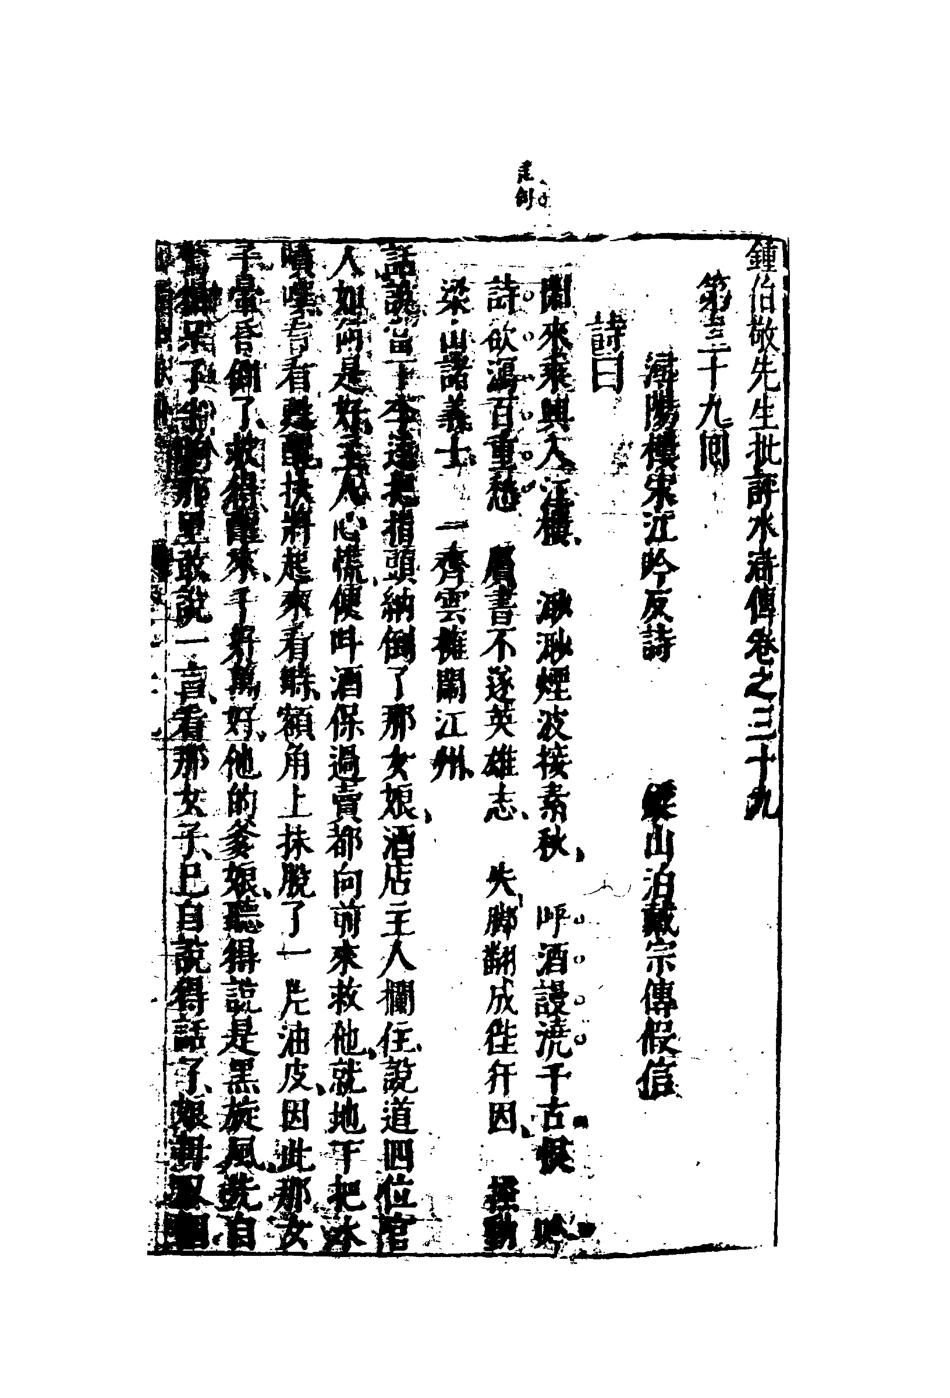 鍾伯敬先生批評水滸傳卷之三十九
第三十九回
潯陽樓宋江吟反詩　梁山泊戴宗傳假信
詩曰
閑來乘興入江樓　渺渺煙波接素秋　呼酒謾澆千古恨　吟
詩欲瀉百重愁　鴈書不遂英雄志　失脚翻成狴犴囚　搔動
梁山諸義士　一齊雲擁鬧江州
話說當下李逵把指頭納倒了那女娘酒店主人攔住說道四位官
人如何是好主人心慌便叫酒保過賣都向前來救他就地下把水
噴噀看看甦醒扶將起來看時額角上抹脫了一片油皮因此那女
子暈昏倒了救得醒來千好萬好他的爹娘聽得說是黑旋風先自
驚得呆了半晌那里敢說一言看那女子已自說得話了娘母取個